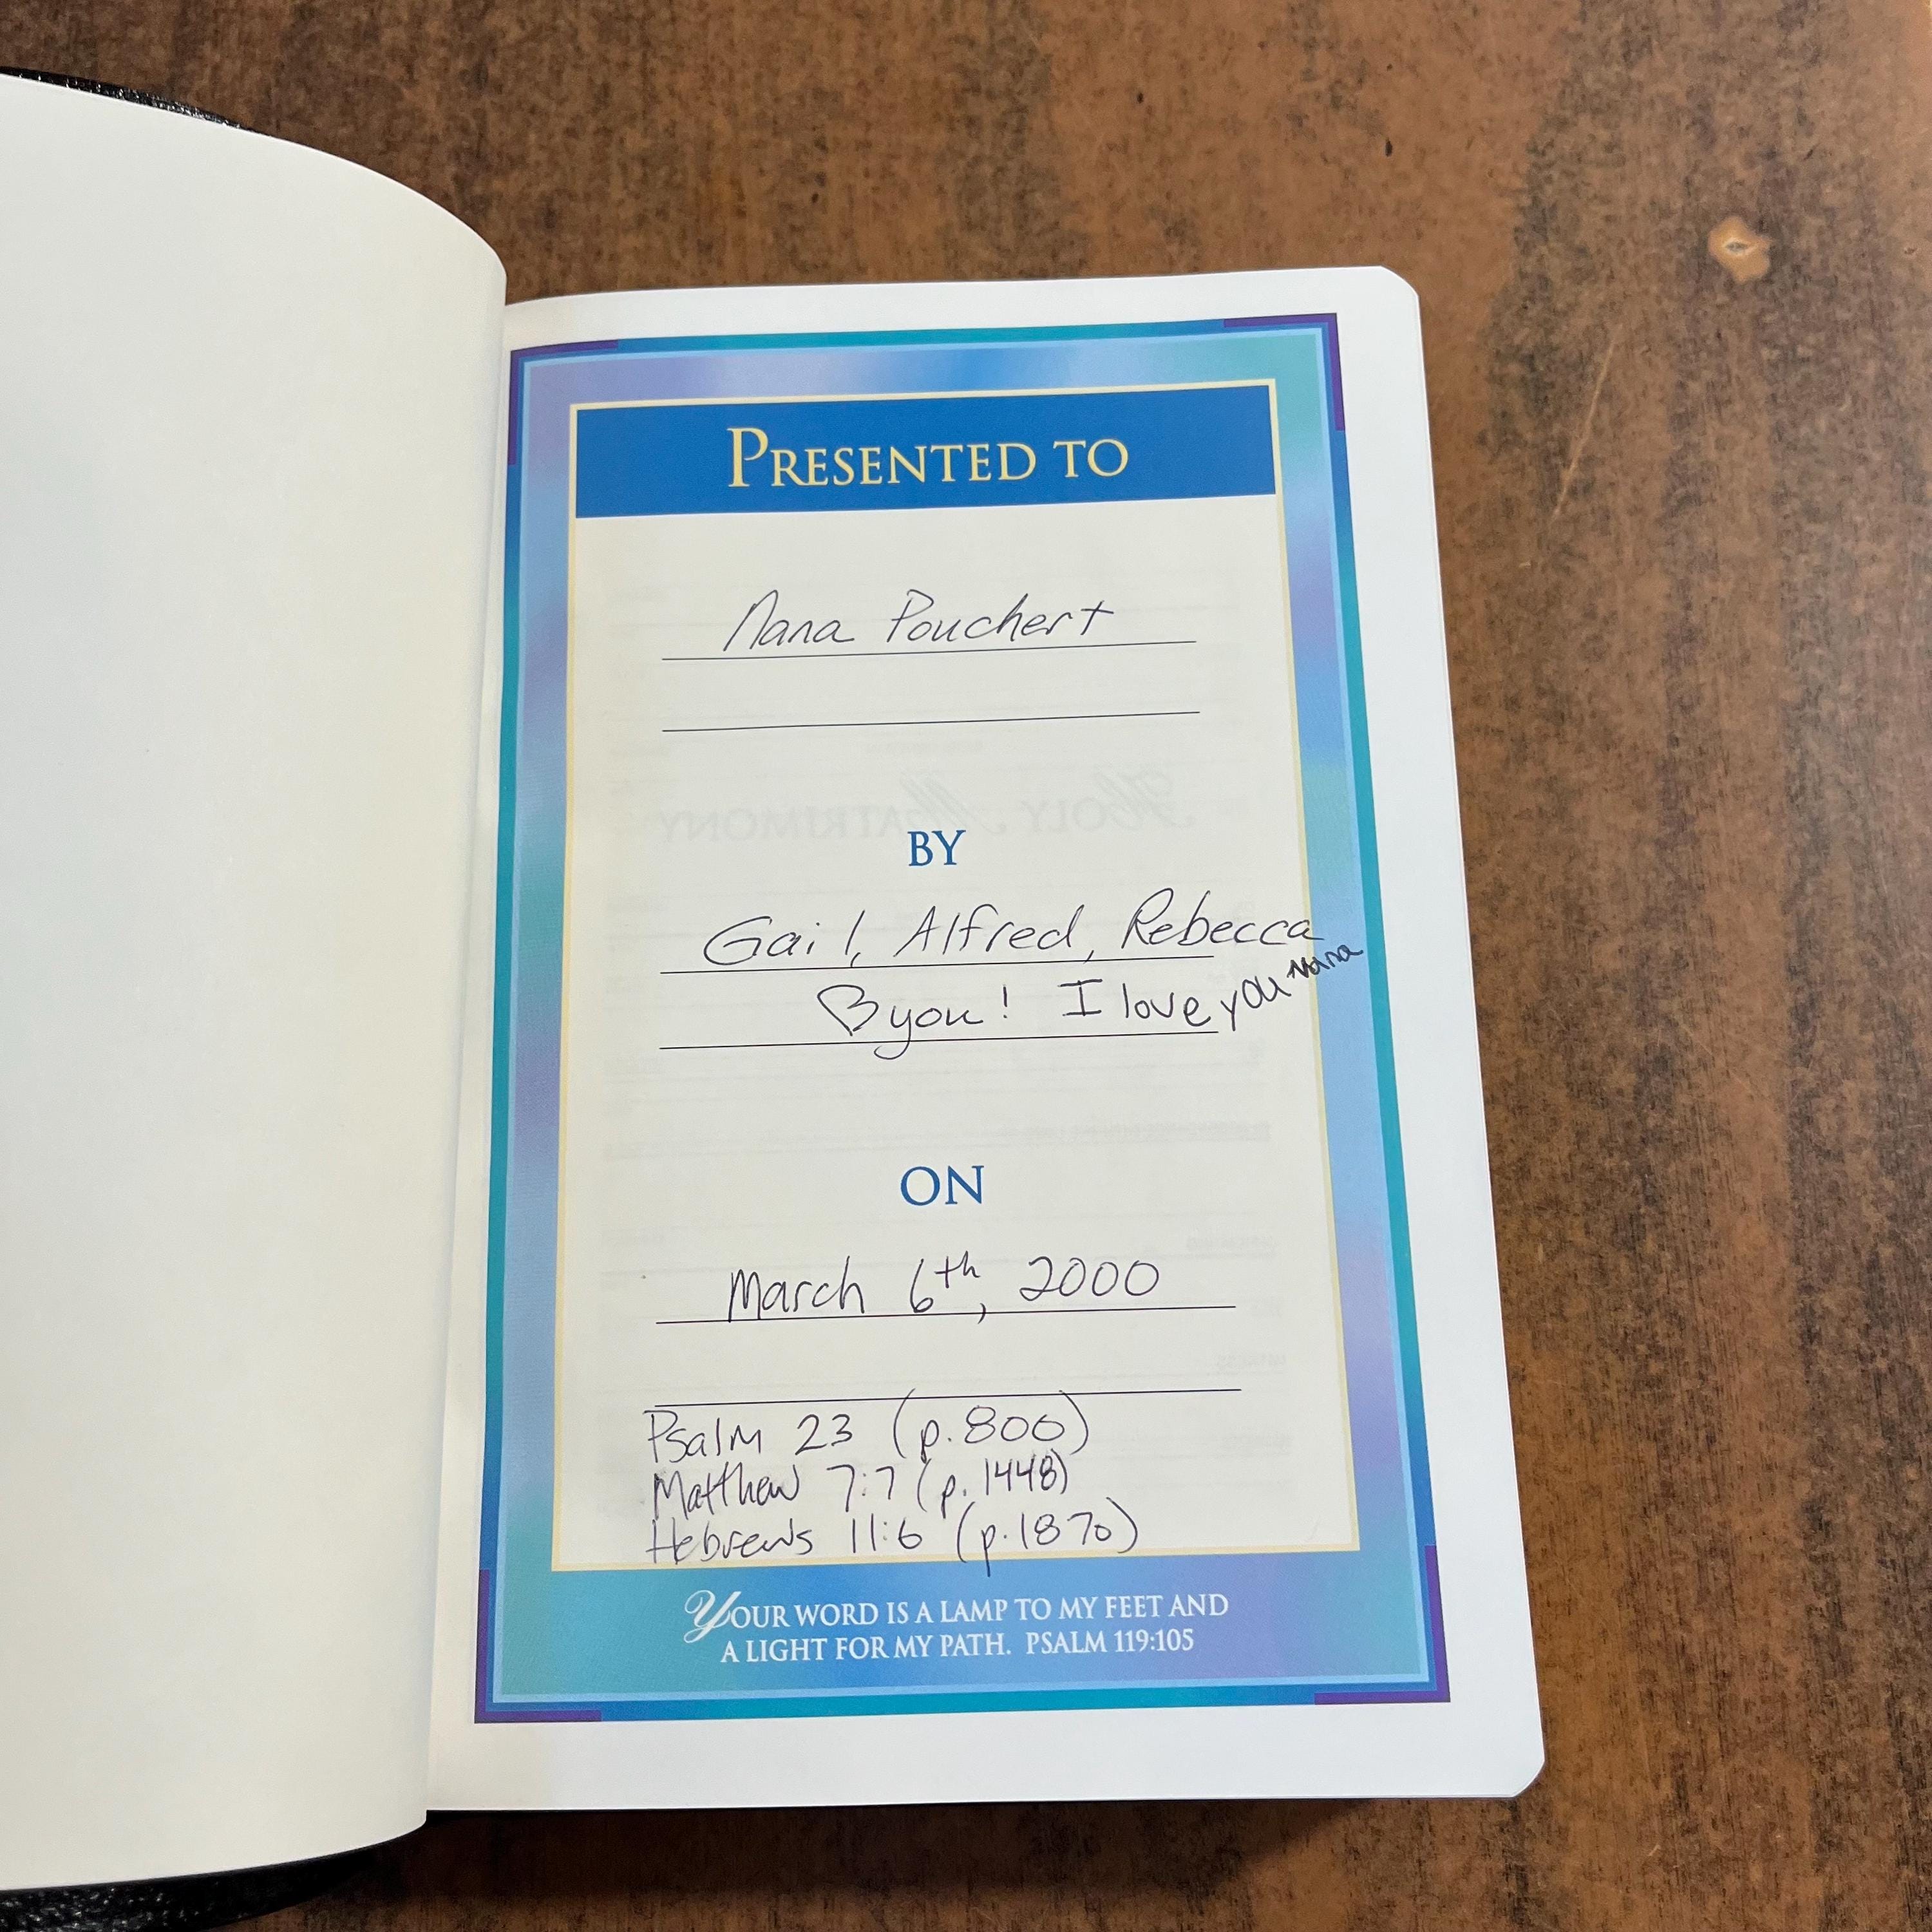 PRESENTED TO
Nana Pouchert
BY
Gail, Alfred, Rebecca
♡ you! I love you Nana
ON
March 6th, 2000
Psalm 23 (p. 800)
Matthew 7:7 (p. 1448)
Hebrews 11:6 (p. 1870)
YOUR WORD IS A LAMP TO MY FEET AND
A LIGHT FOR MY PATH. PSALM 119:105
HOLY MATRIMONY